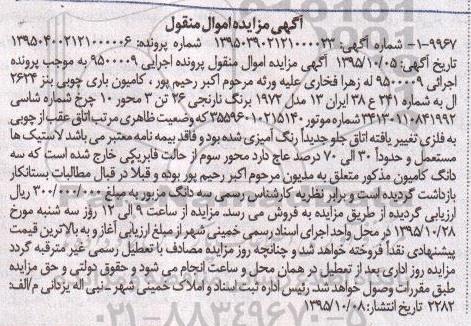 آگهی مزایده اموال منقول
۱-۹۹۶۷- شماره آگهی: ۱۳۹۵۰۳۹۰۲۱۲۱۰۰۰۰۲۳ شماره پرونده: ۱۳۹۵۰۴۰۰۲۱۲۱۰۰۰۰۰۶
تاریخ آگهی: ۱۳۹۵/۱۰/۰۵ آگهی مزایده اموال منقول پرونده اجرایی ۹۵۰۰۰۰۹ به موجب پرونده
اجرائی ۹۵۰۰۰۰۹ له زهرا فخاری علیه ورثه مرحوم اکبر رحیم پور ، کامیون باری چوبی بنز ۲۶۲۴
ال به شماره ۲۴۱ ع ۳۸ ایران ۱۳ مدل ۱۹۷۲ برنگ نارنجی ۲۶ تن ۳ محور ۱۰ چرخ شماره شاسی
۳۴۱۳۰۰۱۱۰۸۴۱۹۹۲ شماره موتور ۳۵۵۹۶۰۱۰۲۱۵۱۴۰ که وضعیت ظاهری مرتب اتاق عقب از چوبی
به فلزی تغییر یافته اتاق جلو جدیداً رنگ آمیزی شده بود و فاقد بیمه نامه معتبر می باشد لاستیک ها
مستعمل و حدوداً ۳۰ الی ۷۰ درصد عاج دارد محور سوم از حالت فابریکی خارج شده است که سه
دانگ کامیون مذکور متعلق به مدیون مرحوم اکبر رحیم پور بوده و قبلا در قبال مطالبات بستانکار
بازداشت گردیده است و برابر نظریه کارشناس رسمی سه دانگ مزبور به مبلغ ۳۰۰/۰۰۰/۰۰۰ ریال
ارزیابی گردیده از طریق مزایده به فروش می رسد. مزایده از ساعت ۹ الی ۱۲ روز سه شنبه مورخ
۱۳۹۵/۱۰/۲۸ در محل واحد اجرای اسناد رسمی خمینی شهر از مبلغ ارزیابی آغاز و به بالاترین قیمت
پیشنهادی نقداً فروخته خواهد شد و چنانچه روز مزایده مصادف با تعطیل رسمی غیر مترقبه گردد
مزایده روز اداری بعد از تعطیل در همان محل و ساعت انجام می شود و حقوق دولتی و حق مزایده
طبق مقررات وصول خواهد شد. رئیس اداره ثبت اسناد و املاک خمینی شهر - نبی اله یزدانی م/الف:
۲۲۸۲ تاریخ انتشار: ۱۳۹۵/۱۰/۰۸
۰۲۱-۸۸۳۴۹۶۷۰-۵